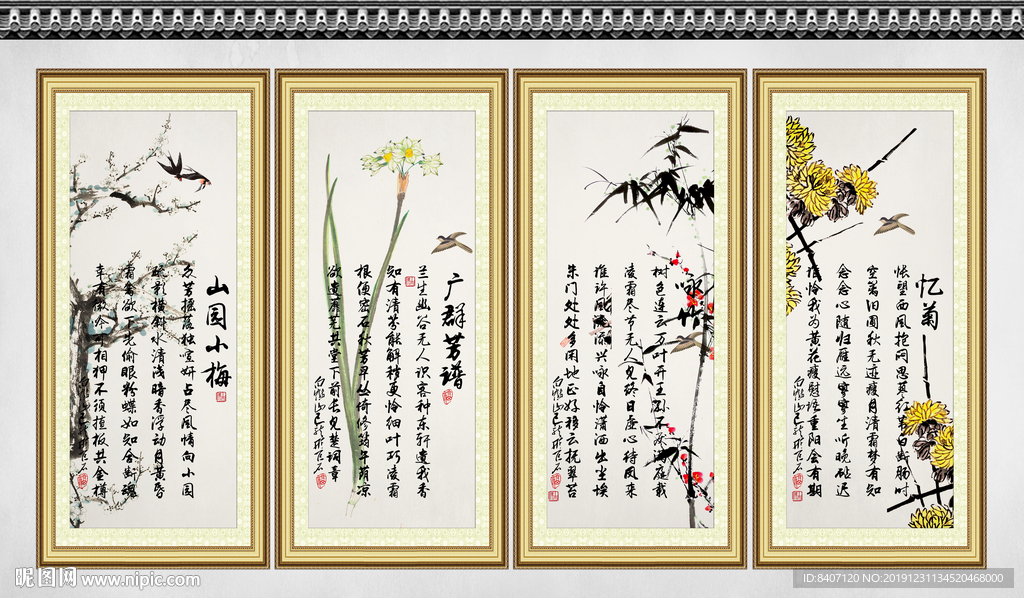 山园小梅
众芳摇落独暄妍占尽风情向小园
疏影横斜水清浅暗香浮动月黄昏
霜禽欲下先偷眼粉蝶如知合断魂
幸有微吟可相狎不须檀板共金樽
广群芳谱
兰生幽谷无人识客种东轩遗我香
知有清芬能解秽更怜细叶巧凌霜
根便密石秋芳早丛倚修筠午荫凉
欲遗蘼芜共堂下眼前长见楚词章
咏竹
树色连云万叶开王孙不厌满庭栽
凌霜尽节无人见终日虚心待凤来
谁许风流添兴咏自怜潇洒出尘埃
朱门处处多闲地正好移云托翠苔
忆菊
怅望西风抱闷思蓼红苇白断肠时
空篱旧圃秋无迹瘦月清霜梦有知
念念心随归雁远寥寥坐听晚砧迟
谁怜我为黄花瘦慰语重阳会有期
昵图网 www.nipic.com
ID:8407120 NO:20191231134520468000